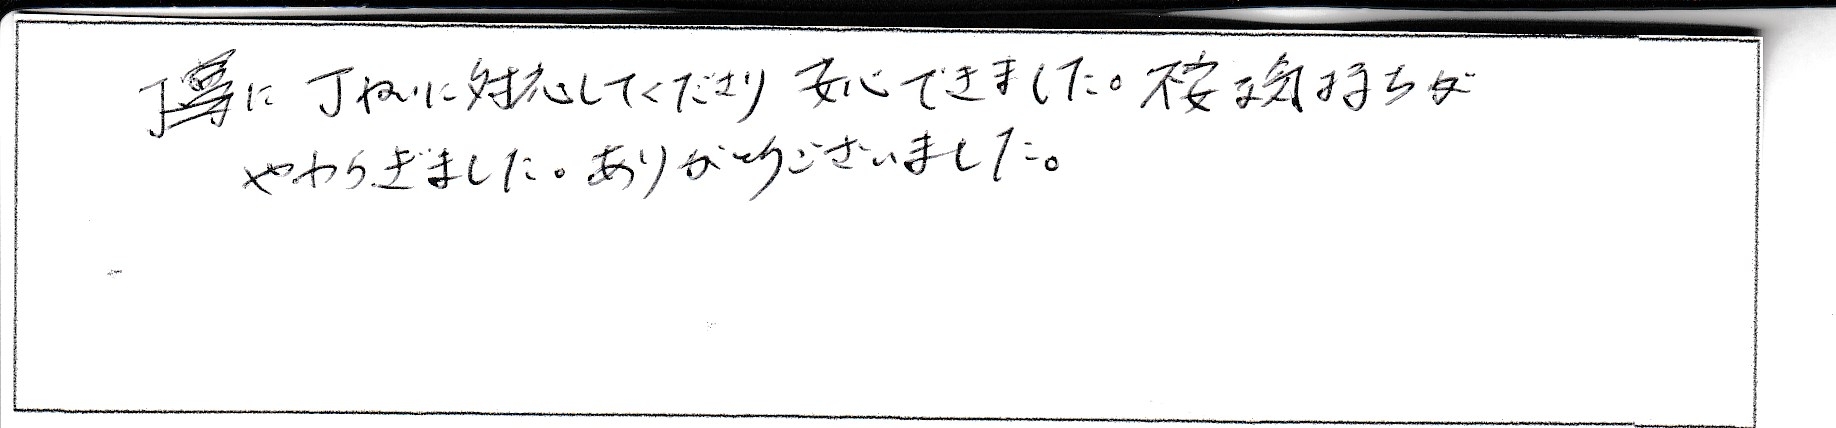 丁寧に 丁ねいに対応してくださり 安心できました。不安な気持ちが
やわらぎました。ありがとうございました。